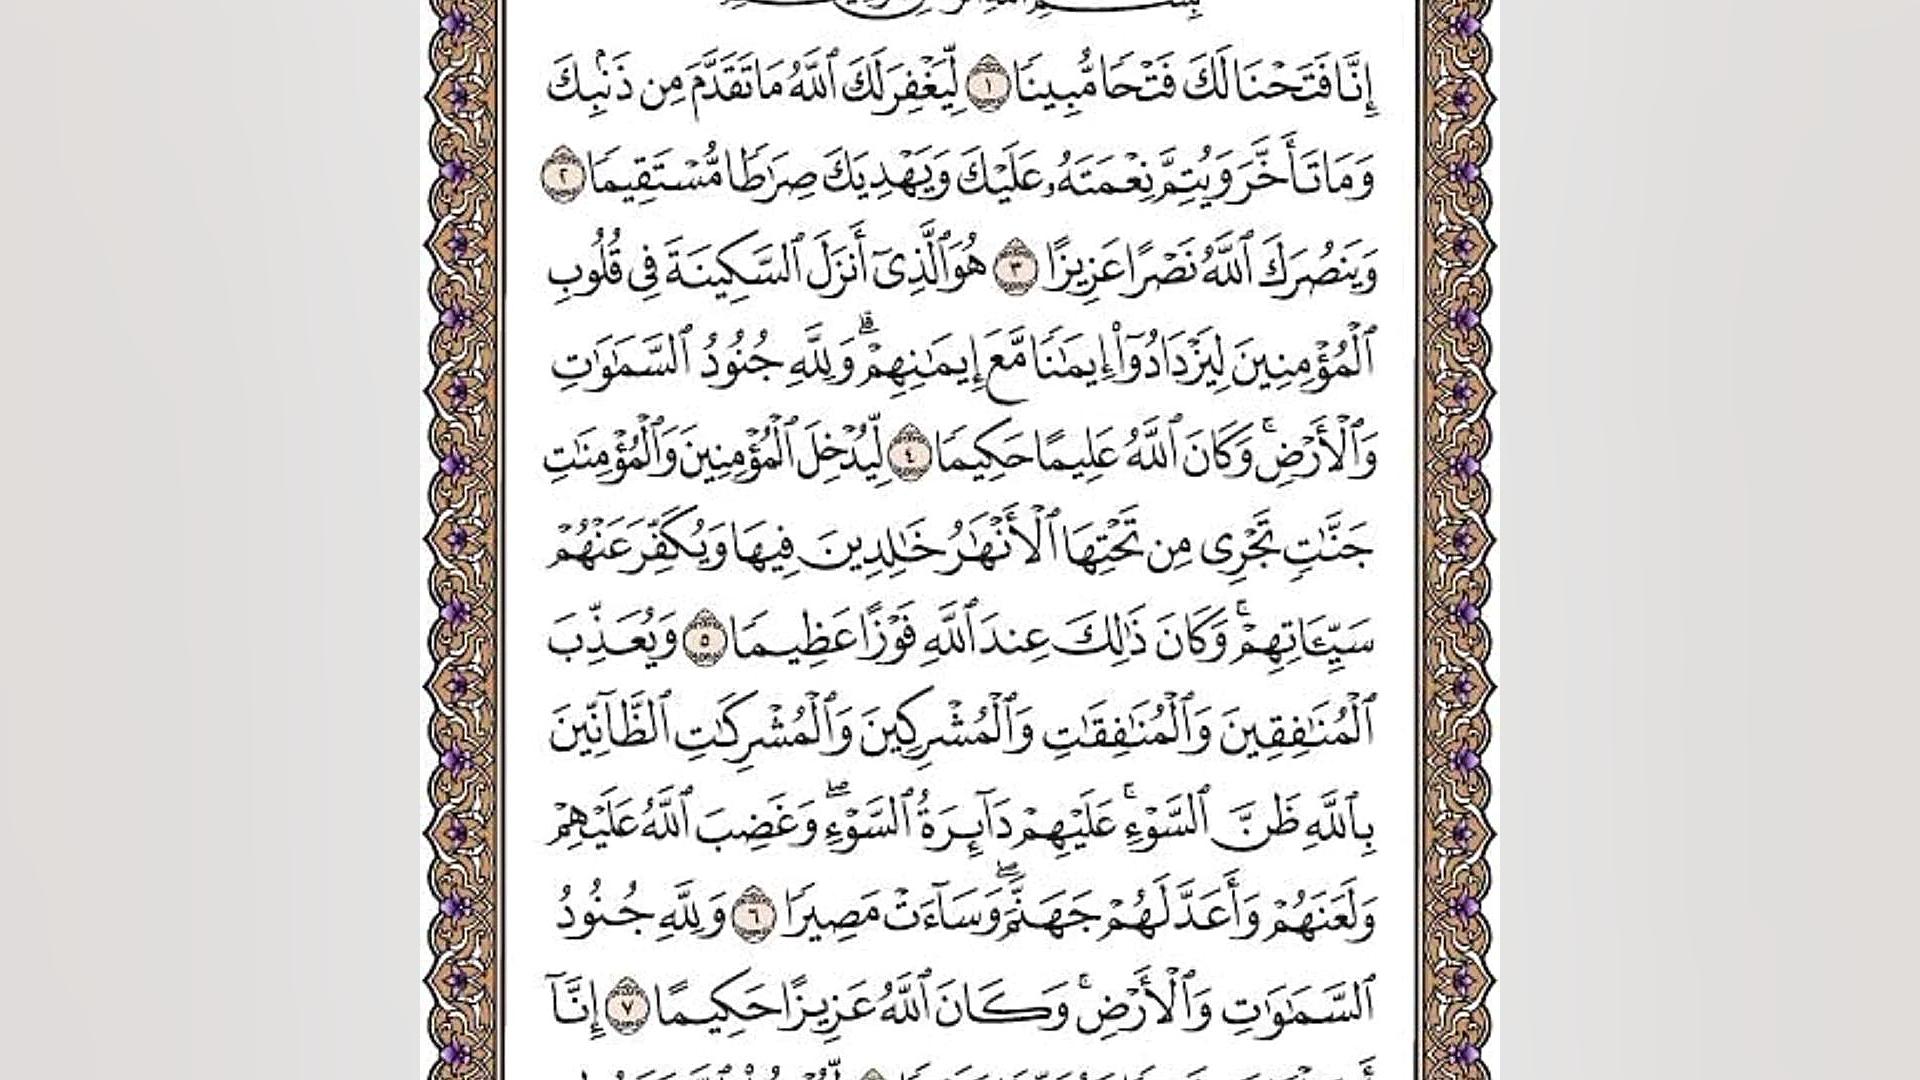 بِسْمِ ٱللَّهِ
إِنَّا فَتَحْنَا لَكَ فَتْحًا مُّبِينًا ١ لِّيَغْفِرَ لَكَ ٱللَّهُ مَا تَقَدَّمَ مِن ذَنۢبِكَ
وَمَا تَأَخَّرَ وَيُتِمَّ نِعْمَتَهُۥ عَلَيْكَ وَيَهْدِيَكَ صِرَٰطًا مُّسْتَقِيمًا ٢
وَيَنصُرَكَ ٱللَّهُ نَصْرًا عَزِيزًا ٣ هُوَ ٱلَّذِىٓ أَنزَلَ ٱلسَّكِينَةَ فِى قُلُوبِ
ٱلْمُؤْمِنِينَ لِيَزْدَادُوٓا۟ إِيمَٰنًا مَّعَ إِيمَٰنِهِمْ ۗ وَلِلَّهِ جُنُودُ ٱلسَّمَٰوَٰتِ
وَٱلْأَرْضِ ۚ وَكَانَ ٱللَّهُ عَلِيمًا حَكِيمًا ٤ لِّيُدْخِلَ ٱلْمُؤْمِنِينَ وَٱلْمُؤْمِنَٰتِ
جَنَّٰتٍ تَجْرِى مِن تَحْتِهَا ٱلْأَنْهَٰرُ خَٰلِدِينَ فِيهَا وَيُكَفِّرَ عَنْهُمْ
سَيِّـَٔاتِهِمْ ۚ وَكَانَ ذَٰلِكَ عِندَ ٱللَّهِ فَوْزًا عَظِيمًا ٥ وَيُعَذِّبَ
ٱلْمُنَٰفِقِينَ وَٱلْمُنَٰفِقَٰتِ وَٱلْمُشْرِكِينَ وَٱلْمُشْرِكَٰتِ ٱلظَّآنِّينَ
بِٱللَّهِ ظَنَّ ٱلسَّوْءِ ۚ عَلَيْهِمْ دَآئِرَةُ ٱلسَّوْءِ ۖ وَغَضِبَ ٱللَّهُ عَلَيْهِمْ
وَلَعَنَهُمْ وَأَعَدَّ لَهُمْ جَهَنَّمَ ۖ وَسَآءَتْ مَصِيرًا ٦ وَلِلَّهِ جُنُودُ
ٱلسَّمَٰوَٰتِ وَٱلْأَرْضِ ۚ وَكَانَ ٱللَّهُ عَزِيزًا حَكِيمًا ٧ إِنَّآ